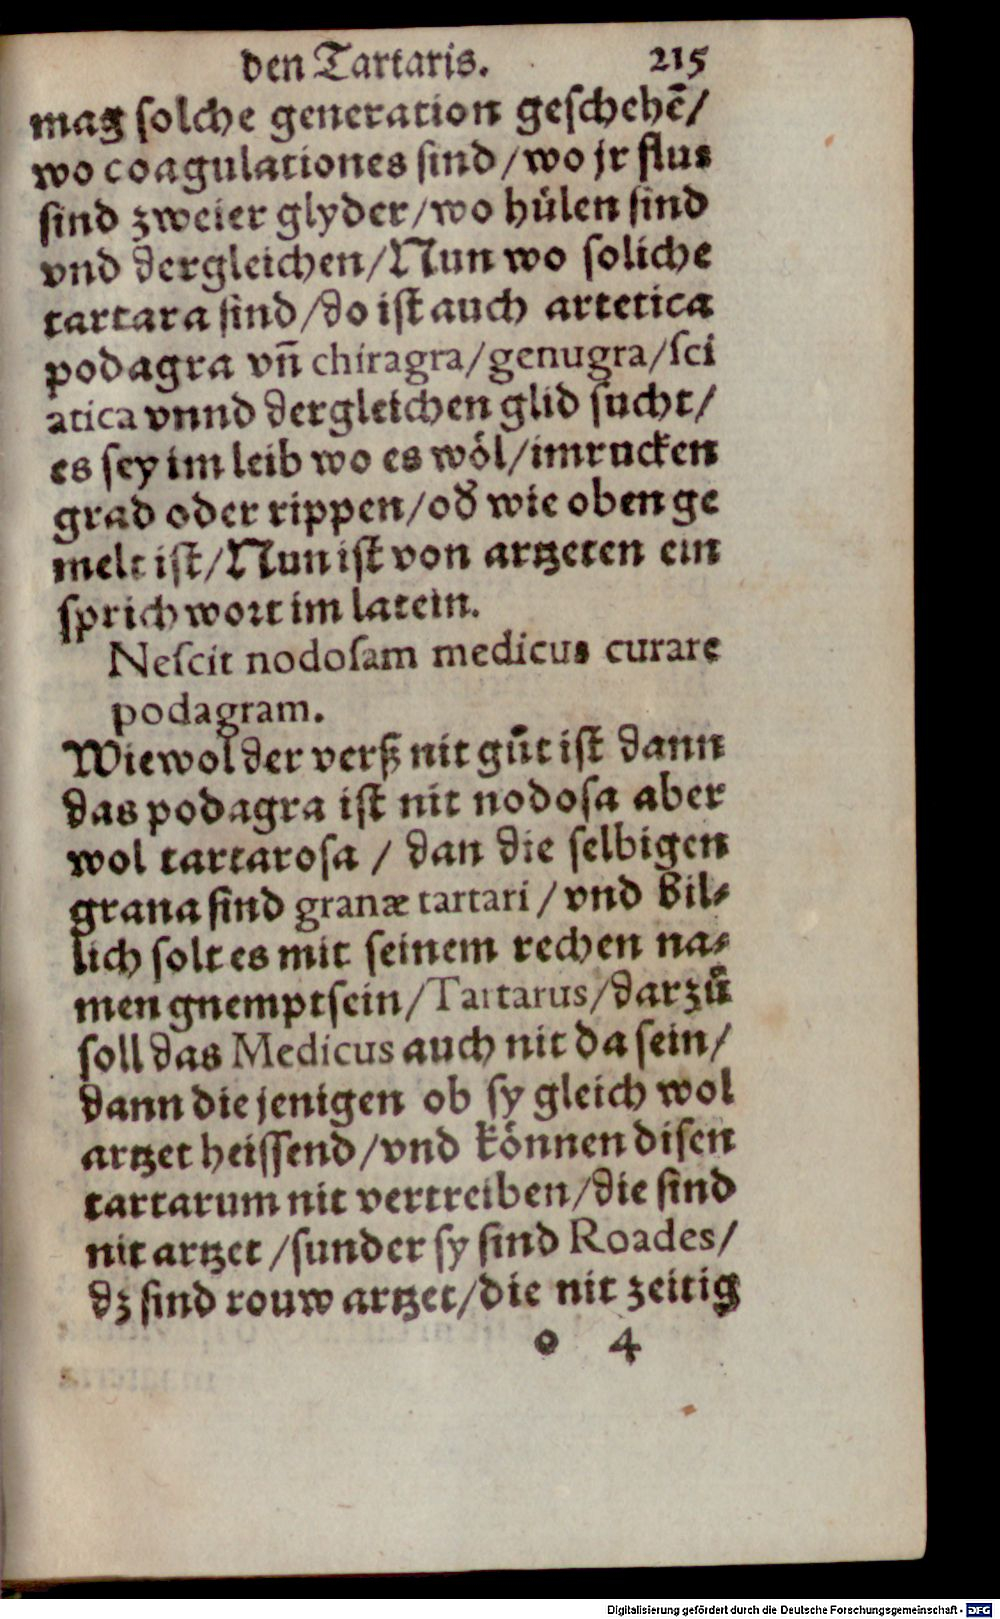 den Tartaris. 215
mag solche generation geschehẽ/
wo coagulationes sind/wo jr flus
sind zweier glyder/wo hülen sind
vnd dergleichen/Nun wo soliche
tartara sind/do ist auch artetica
podagra vñ chiragra/genugra/sci
atica vnnd dergleichen glid sucht/
es sey im leib wo es wöl/im rucken
grad oder rippen/od̓ wie oben ge
melt ist/Nun ist von artzeten ein
sprichwort im latein.
Nescit nodosam medicus curare
podagram.
Wiewol der verß nit gůt ist dann
das podagra ist nit nodosa aber
wol tartarosa / dan die selbigen
grana sind granæ tartari / vnd bil⸗
lich solt es mit seinem rechen na⸗
men gnempt sein/Tartarus/darzů
soll das Medicus auch nit da sein/
dann die jenigen ob sy gleich wol
artzet heissend/vnd können disen
tartarum nit vertreiben/die sind
nit artzet /sunder sy sind Roades/
dz sind rouw artzet/die nit zeitig
o 4
Digitalisierung gefördert durch die Deutsche Forschungsgemeinschaft - DFG